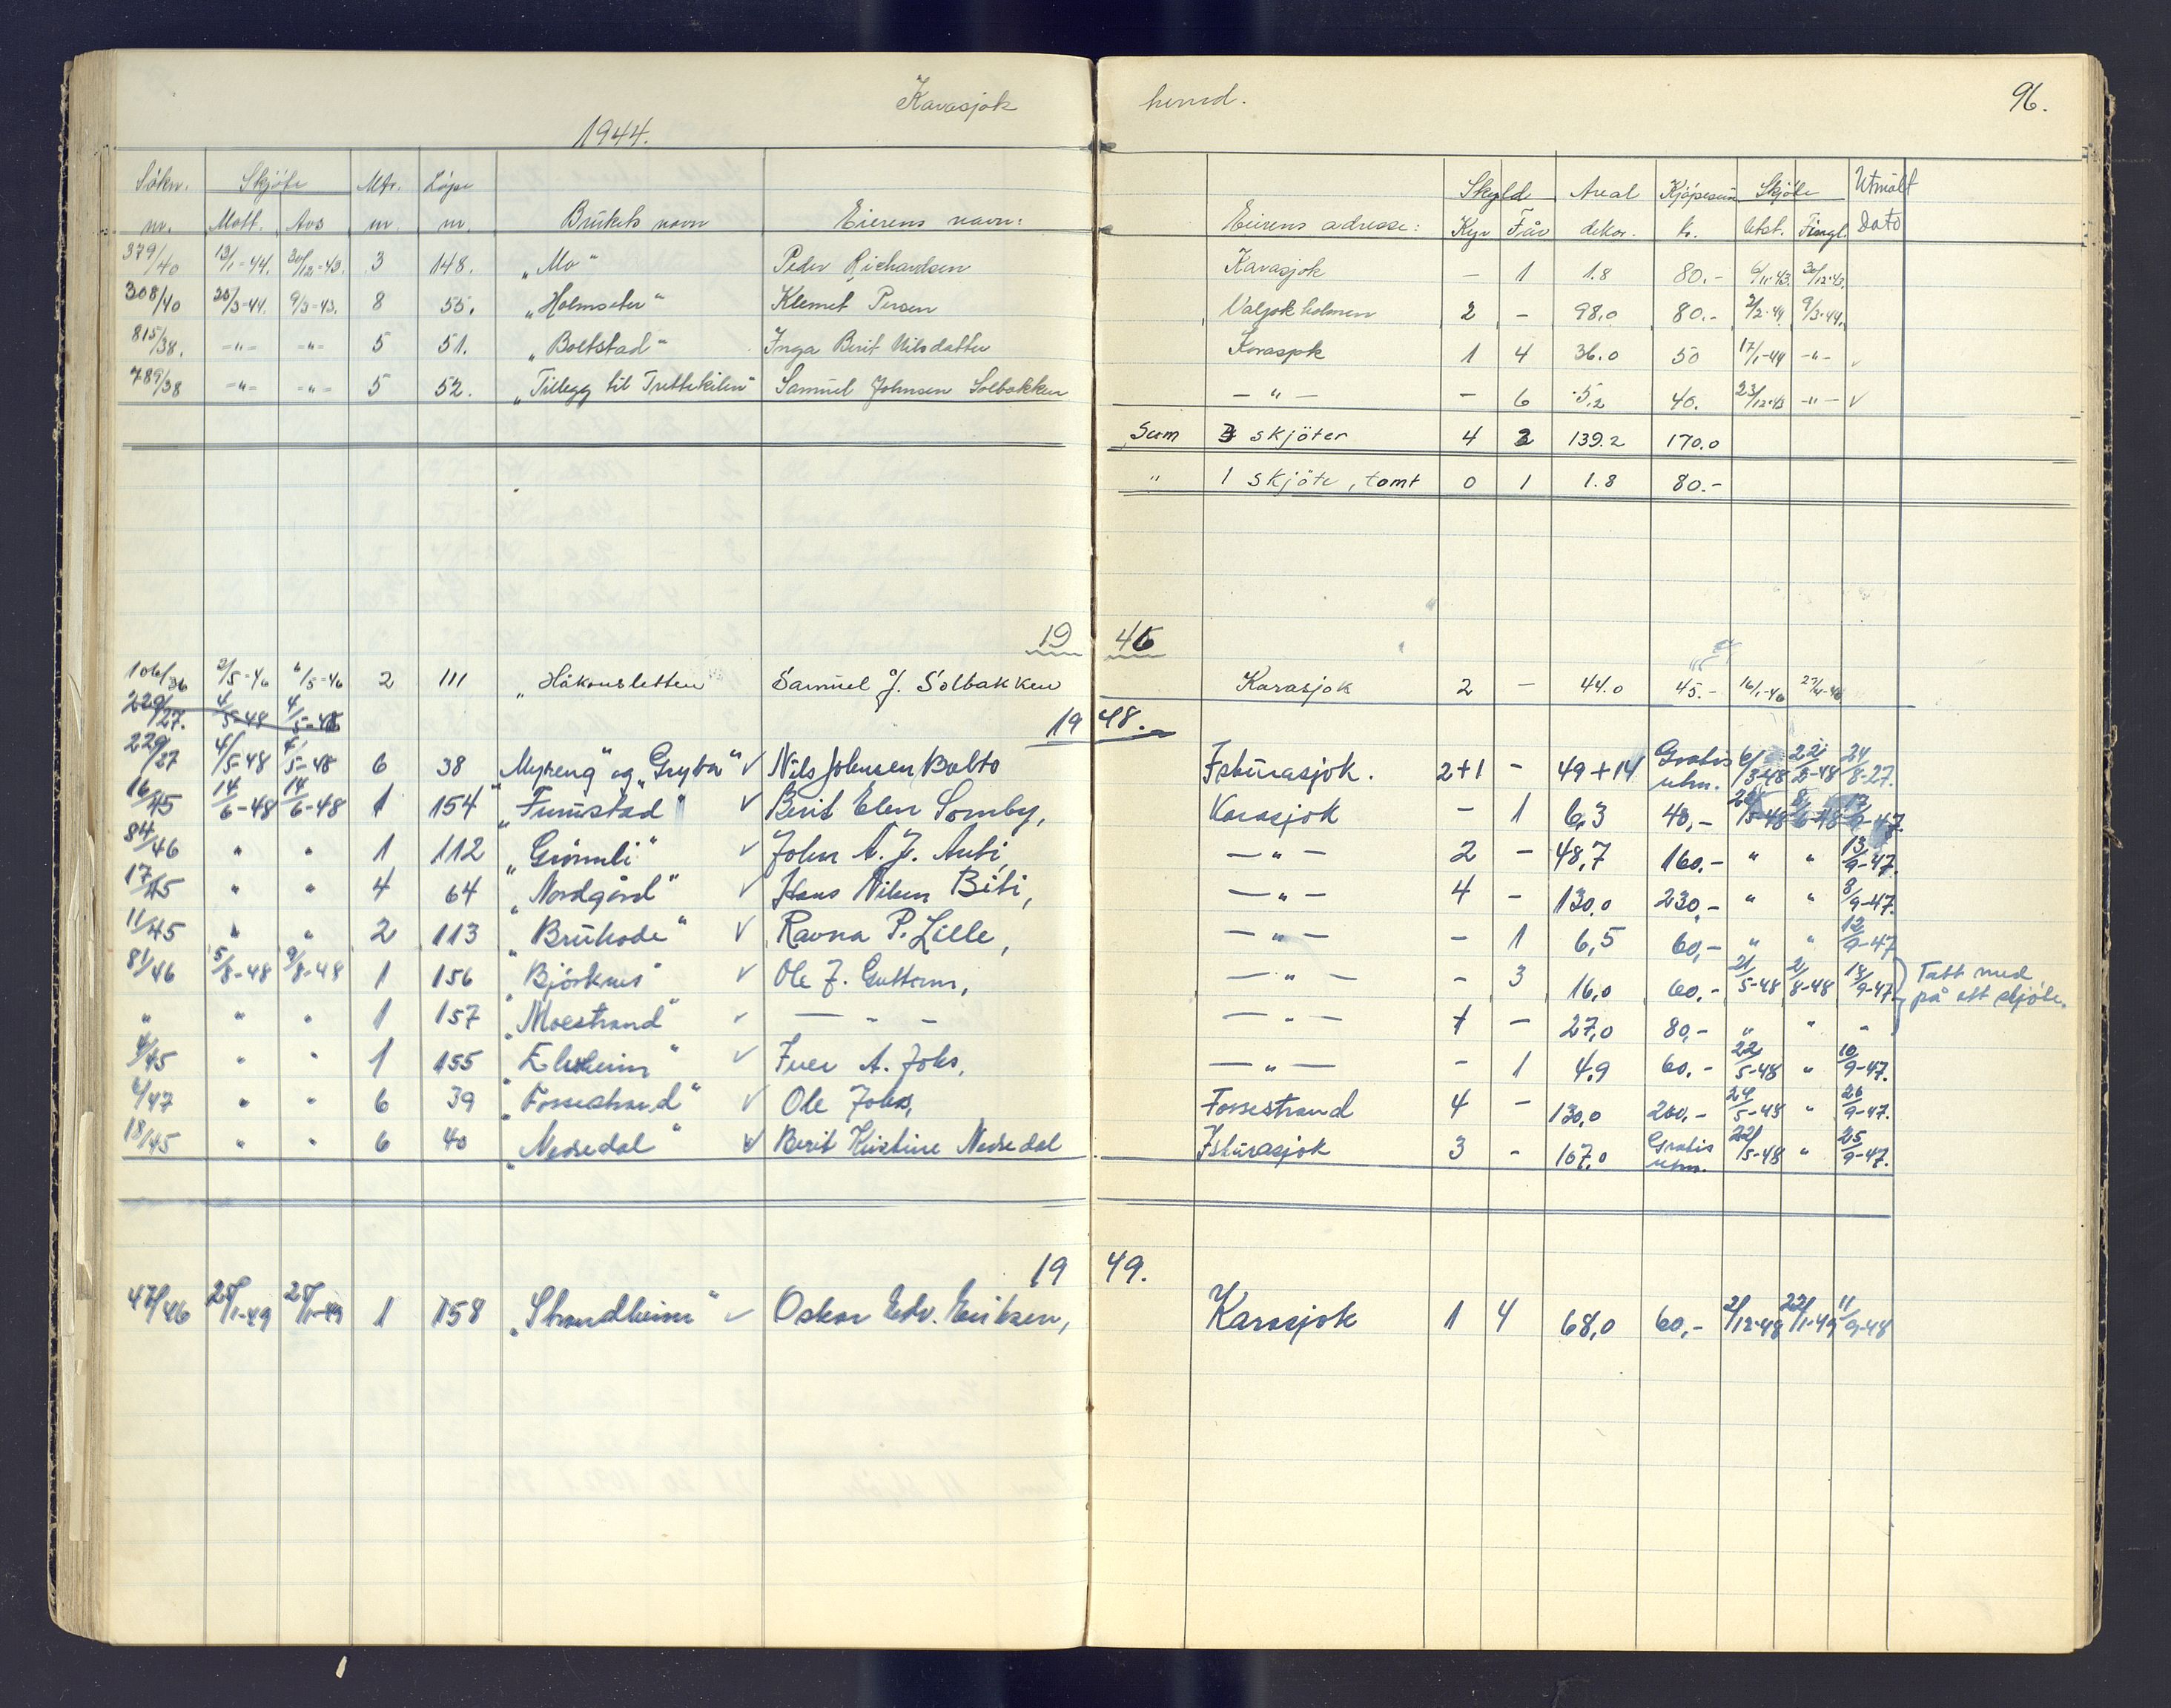 Karasjok herred. 96.
1944.
Søkn. Skjøte Mtr. Løpe Skyld Areal Kjøpesum Skjøte Utmålt
nr. Mott. Avs nr. nr. Brukets navn Eierens navn: Eierens adresse: Kyr Får dekar. kr. Utst. Tingl. Dato
379/40 13/1-44. 30/12-43. 3 148. "Mo" Peder Richardsen Karasjok - 1 1.8 80.- 6/11-43. 30/12-43.
308/40 20/3-44. 9/3-43. 8 55. "Holmseter" Klemet Persen Valjokholmen 2 - 98,0 80.- 2/2-44 9/3-44.
815/38. -"- -"- 5 51. "Boltstad" Inga Berit Nilsdatter Karasjok 1 4 36.0 50 17/1-44 -"- v
789/38 -"- -"- 5 52. "Tillegg til Trettekilen" Samuel Johnsen Solbakken -"- - 6 5,2 40. 23/12-43 -"- v
Sum 3 skjöter 4 2 139.2 170.0
" 1 skjöte, tomt 0 1 1.8 80.-
1946
106/36 2/5-46 6/5-46 2 111 "Håkonsletten" Samuel J. Solbakken Karasjok 2 - 44.0 45.- 16/1-46 27/4-46
229/27. 4/5-48 4/5-48
1948.
229/27 4/5-48 4/5-48 6 38 "Myreng" og "Gryta" v Nils Johnsen Balto Iskurasjok. 2+1 - 49+14 Gratis utm. 6/3-48 22/3-48 24/8-27.
16/45 14/6-48 14/6-48 1 154 "Furustad" v Berit Elen Somby, Karasjok - 1 6,3 40,- 22/5-48 8/6-48 12/9-47.
84/46 " " 1 112 "Grönnli" v John A. J. Anti -"- 2 - 48,7 160,- " " 13/9-47.
17/45 " " 4 64 "Nordgård" v Hans Nilsen Biti, -"- 4 - 130,0 230,- " " 8/9-47.
11/45 " " 2 113 "Bruhode" v Ravna P. Lille, -"- - 1 6,5 60,- " " 12/9-47
81/46 5/8-48 9/8-48 1 156 "Björknes" v Ole J. Guttorm, -"- - 3 16,0 60,- 21/5-48 2/8-48 18/9-47 Tatt med
" " " 1 157 "Moestrand" v -"- -"- 1 - 27,0 80,- " " " på ett skjøte.
4/45 " " 1 155 "Elvheim" v Iver A. Joks, -"- - 1 4,9 60.- 22/5-48 " 10/9-47.
6/47 " " 6 39 "Fossestrand" v Ole Joks, Fossestrand 4 - 130,0 200,- 24/5-48 " 26/9-47.
18/45 " " 6 40 "Nedredal" v Berit Kristine Nedredal Iskurasjok 3 - 167,0 Gratis utm. 22/5-48 " 25/9-47.
1949.
47/46 25/1-49 25/1-49 1 158 "Strandheim" v Oskar Edv. Eriksen, Karasjok 1 4 68,0 60,- 2/12-48 22/1-49 11/9-48